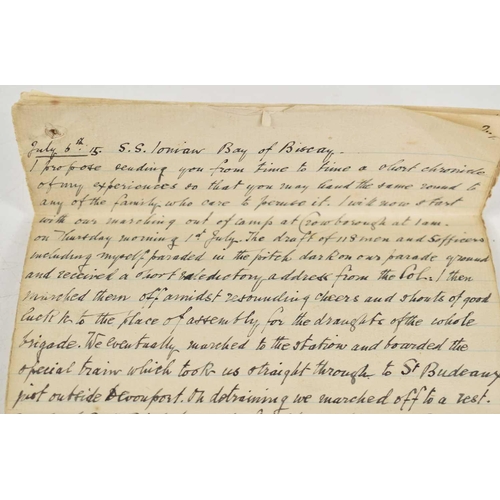 July 6th 15. S.S. Ionian Bay of Biscay.
I propose sending you from time to time a short chronicle
of my experiences so that you may hand the same round to
any of the family who care to peruse it. I will now start
with our marching out of camp at Crowborough at 1am.
on Thursday morning 1st July. The draft of 118 men and 5 officers
including myself paraded in the pitch dark on our parade ground
and received a short valedictory address from the Col. I then
marched them off amidst resounding cheers and shouts of good
luck to the place of assembly for the draughts of the whole
brigade. We eventually marched to the station and boarded the
special train which took us straight through to St Budeaux
just outside Devonport. On detraining we marched off to a rest.